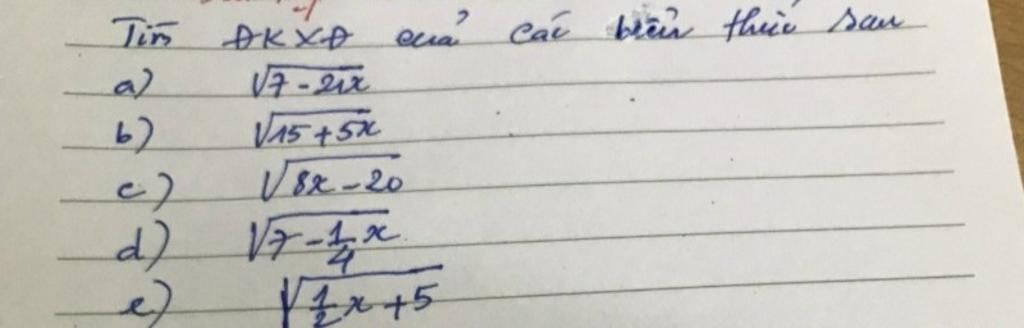 Tìm ĐKXĐ của các biểu thức sau
a) √7-2x
b) √15+5x
c) √8x-20
d) √7-1/4x
e) √1/2x+5